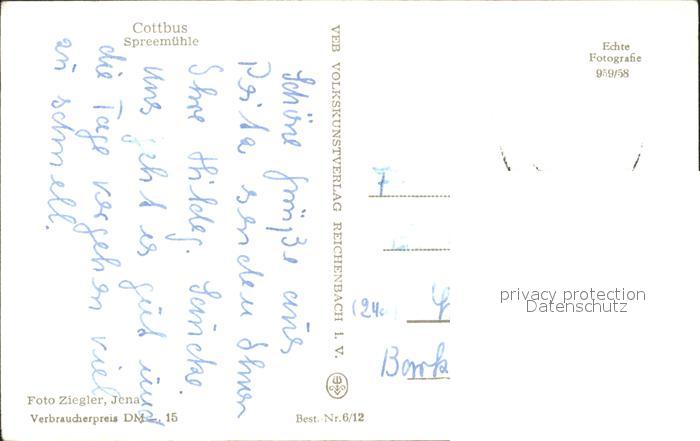 Cottbus
Spreemühle
Schöne Grüße aus
senden Ihnen
Ihre Hildeg.
Uns geht es gut und
die Tage vergehen viel
zu schnell.
Foto Ziegler, Jena
Verbraucherpreis DM —. 15
VEB VOLKSKUNSTVERLAG REICHENBACH I. V.
Best. Nr. 6/12
Echte
Fotografie
959/58
(24a)
Bork
privacy protection
Datenschutz